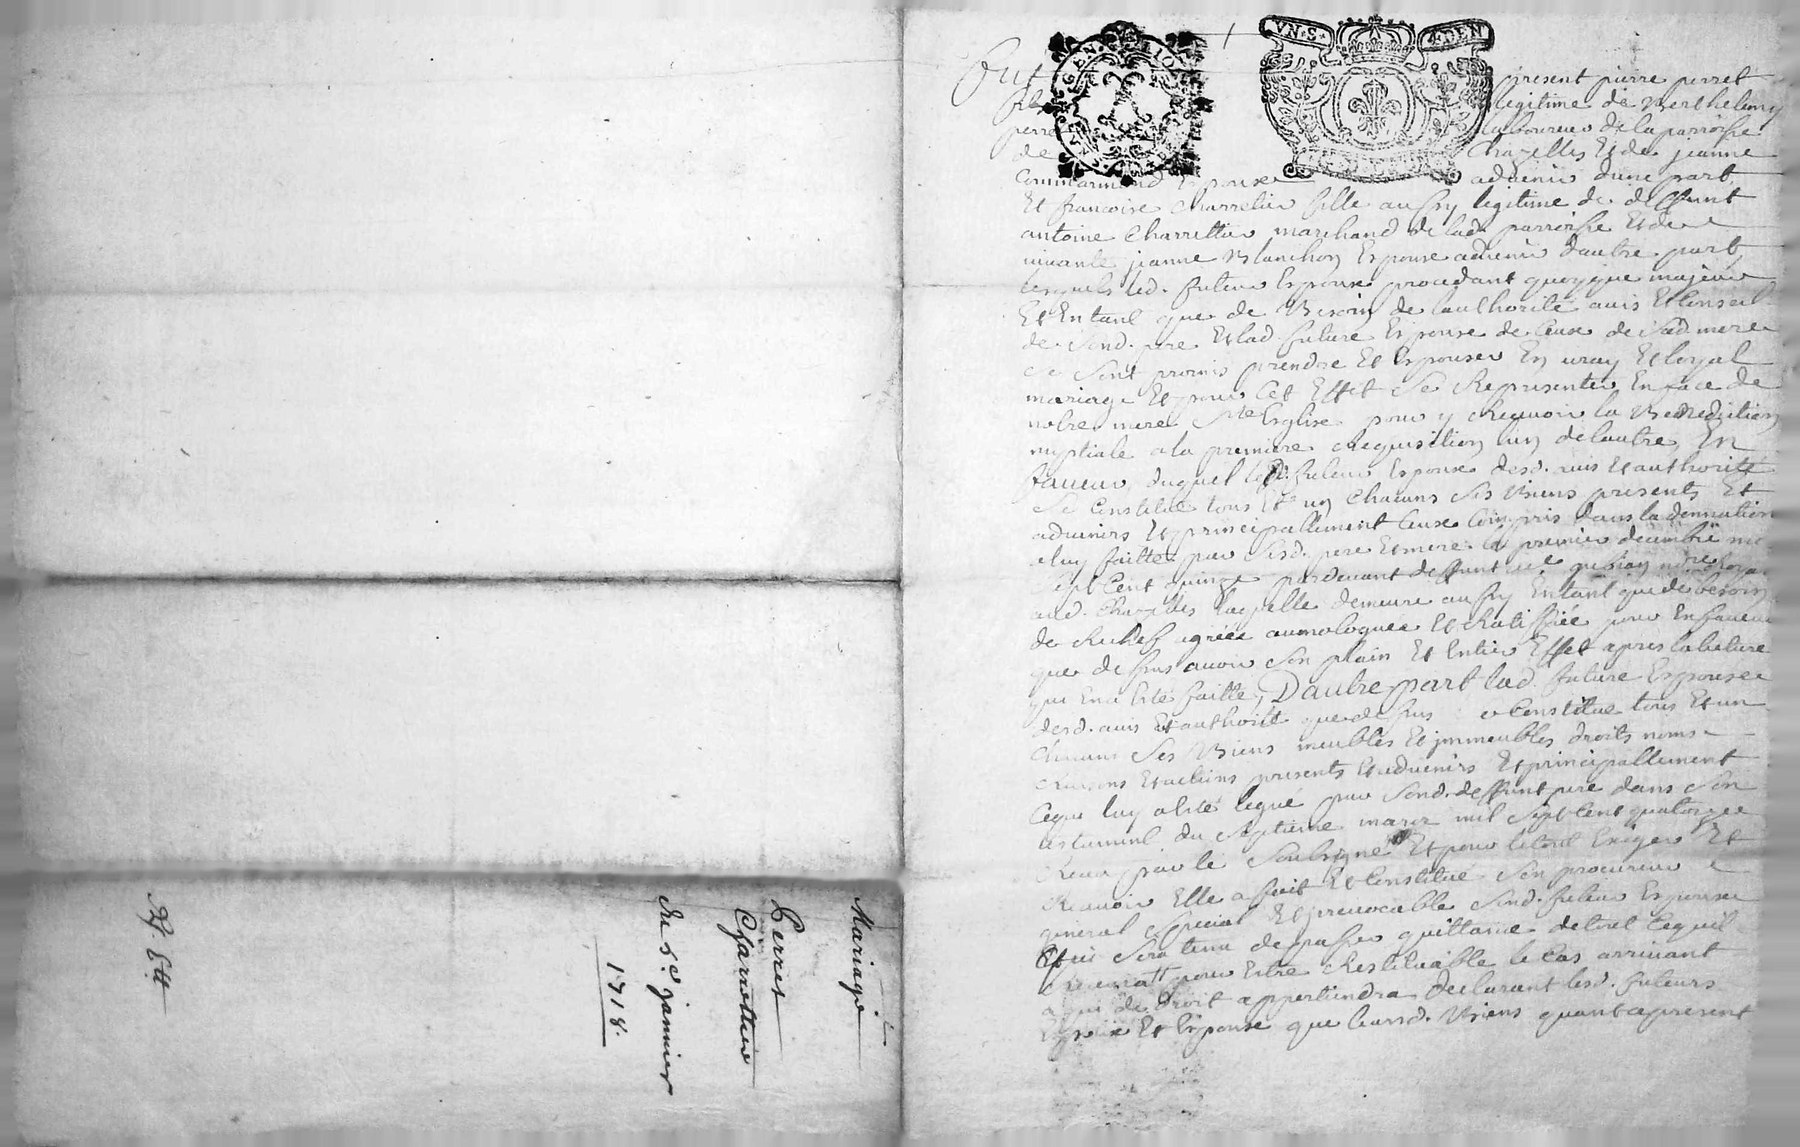 Mariage
Perret
Charretier
du 6e. janvier
1718.
GEN LION
VN S. 4 DEN
Fut present pierre perret
fils legitime de Berthelemy
perret laboureur de la parroisse
de Chazelles Et de jeanne
Commarmond Espoux advenir dune part
Et francoise Charretier fille aussy legitime de deffunt
antoine Charrettier marchand de lad. parroisse Et de
vivante jeanne Blanchon Espouse advenir dautre part
lesquels led. futeur Espoux procedant quoyque majeur
Et En tant que de Besoin de lauthorité avis Et Conseil
de Sond. pere Et lad. future Espouse de Ceux de Sad. mere
Se Sont promis prendre Et Espouser En vray Et loyal
mariage Et pour Cet Effet Se Representer En face de
notre mere Ste Esglise pour y Recevoir la Benediction
nuptiale a la premiere Requisition lun de lautre, En
faveur duquel led. futeur Espoux desd. avis Et authorité
Se Constitue tous Et un Chacuns Ses Biens presents Et
advenirs Et principallement Ceux Compris dans la donnation
a luy faitte par Sesd. pere Et mere le premier decembre mil
Sept Cent quinze pardevant deffunt me notre Royal
aud. Chazelles laquelle demeure aussy En tant que de besoin
de Rechef agreée aumologuée Et Ratiffiée pour En faveur
que dessus avoir Son plain Et Entier Effet apres la lecture
qui En a Esté faitte, D'autre part lad. future Espouse
desd. avis Et authorité que dessus Constitue tous Et un
Chacuns Ses Biens meubles Et jmmeubles droits noms
Raisons Et actions presents Et advenirs Et principallement
Ceque luy a Esté legué par Sond. deffunt pere dans Son
testament du Septieme mars mil Sept Cent quatorze
Receu par le Soubsigné Et pour le tout Exiger Et
Recevoir Elle a fait Et Constitué Son procureur
general Special Et jrrevocable Sond. futeur Espoux
qui Sera tenu de passer quittance de tout Cequil
Recevra pour Estre Restituable le Cas arrivant
a qui de droit appartiendra declarant lesd. futeurs
Espoux Et Espouse que leursd. Biens quant apresent